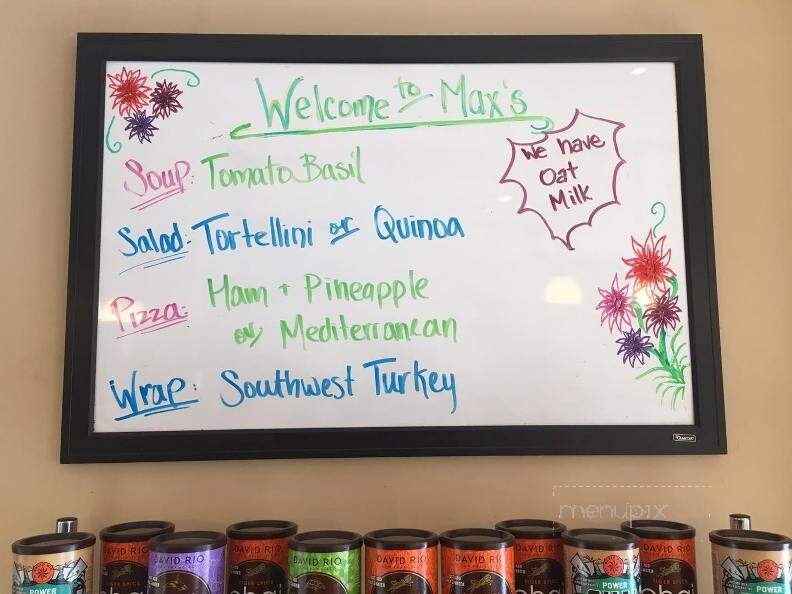 Welcome to Max's
We have
Oat
Milk
Soup: Tomato Basil
Salad: Tortellini or Quinoa
Pizza: Ham + Pineapple
or Mediterranean
Wrap: Southwest Turkey
Quartet
menupix
DAVID RIO
DAVID RIO
DAVID RIO
DAVID RIO
DAVID RIO
DAVID RIO
DAVID RIO
DAVID RIO
TIGER SPICE
TIGER SPICE
TIGER SPICE
chai
chai
POWER
POWER